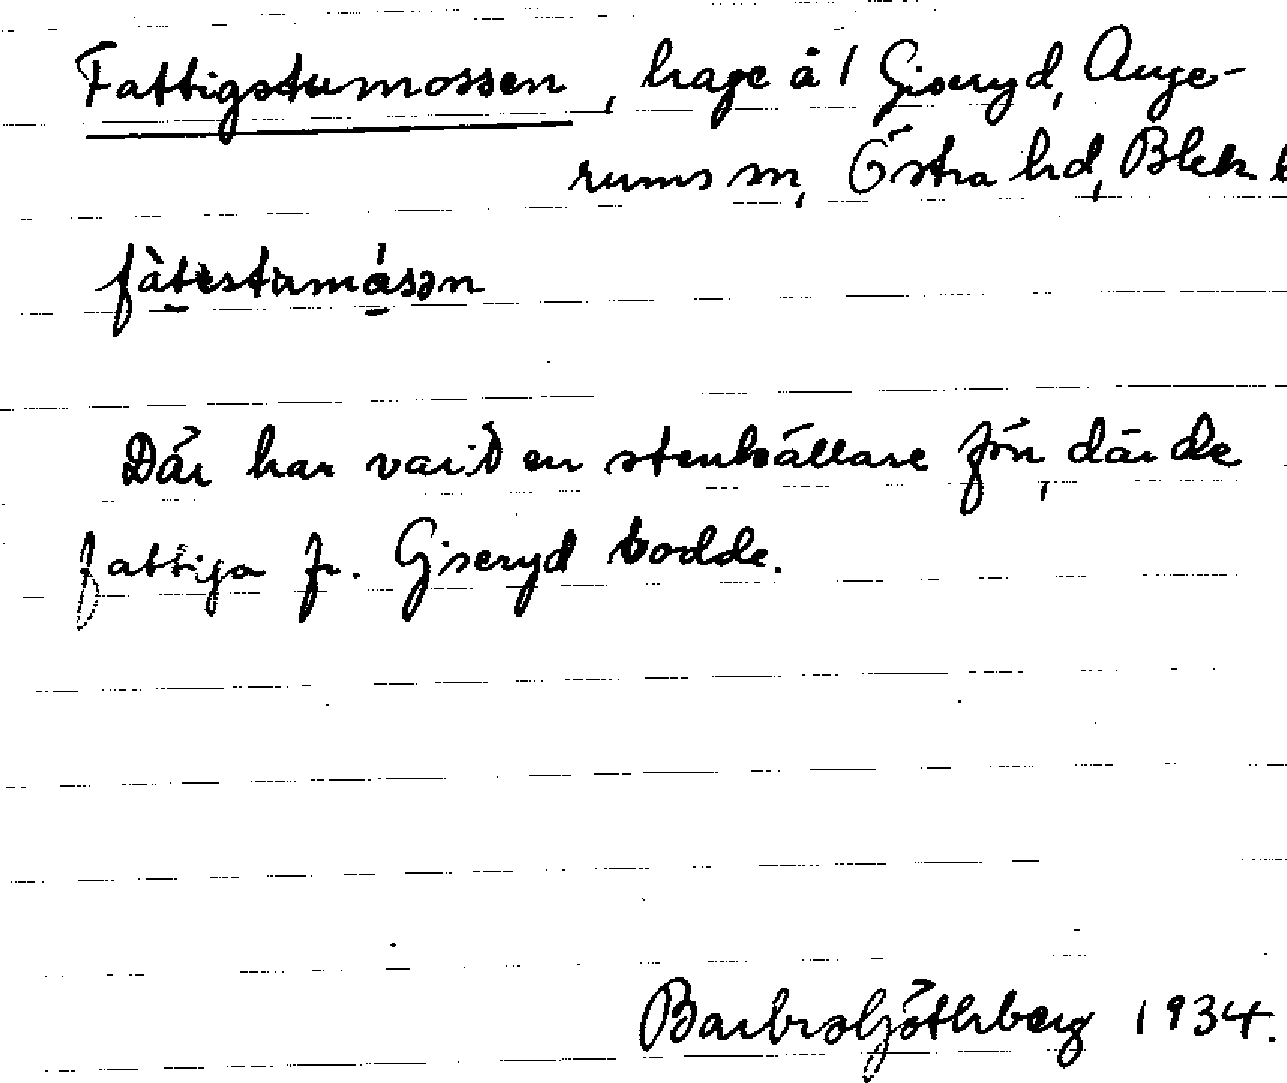 Fattigstumossen, hage å 1 Giseryd, Auge-
rums sn, Östra hd, Blek
fàtestamásən
Där har varit en stenkällare förr, där de
fattiga fr. Giseryd bodde.
Barbro Göthberg 1934.